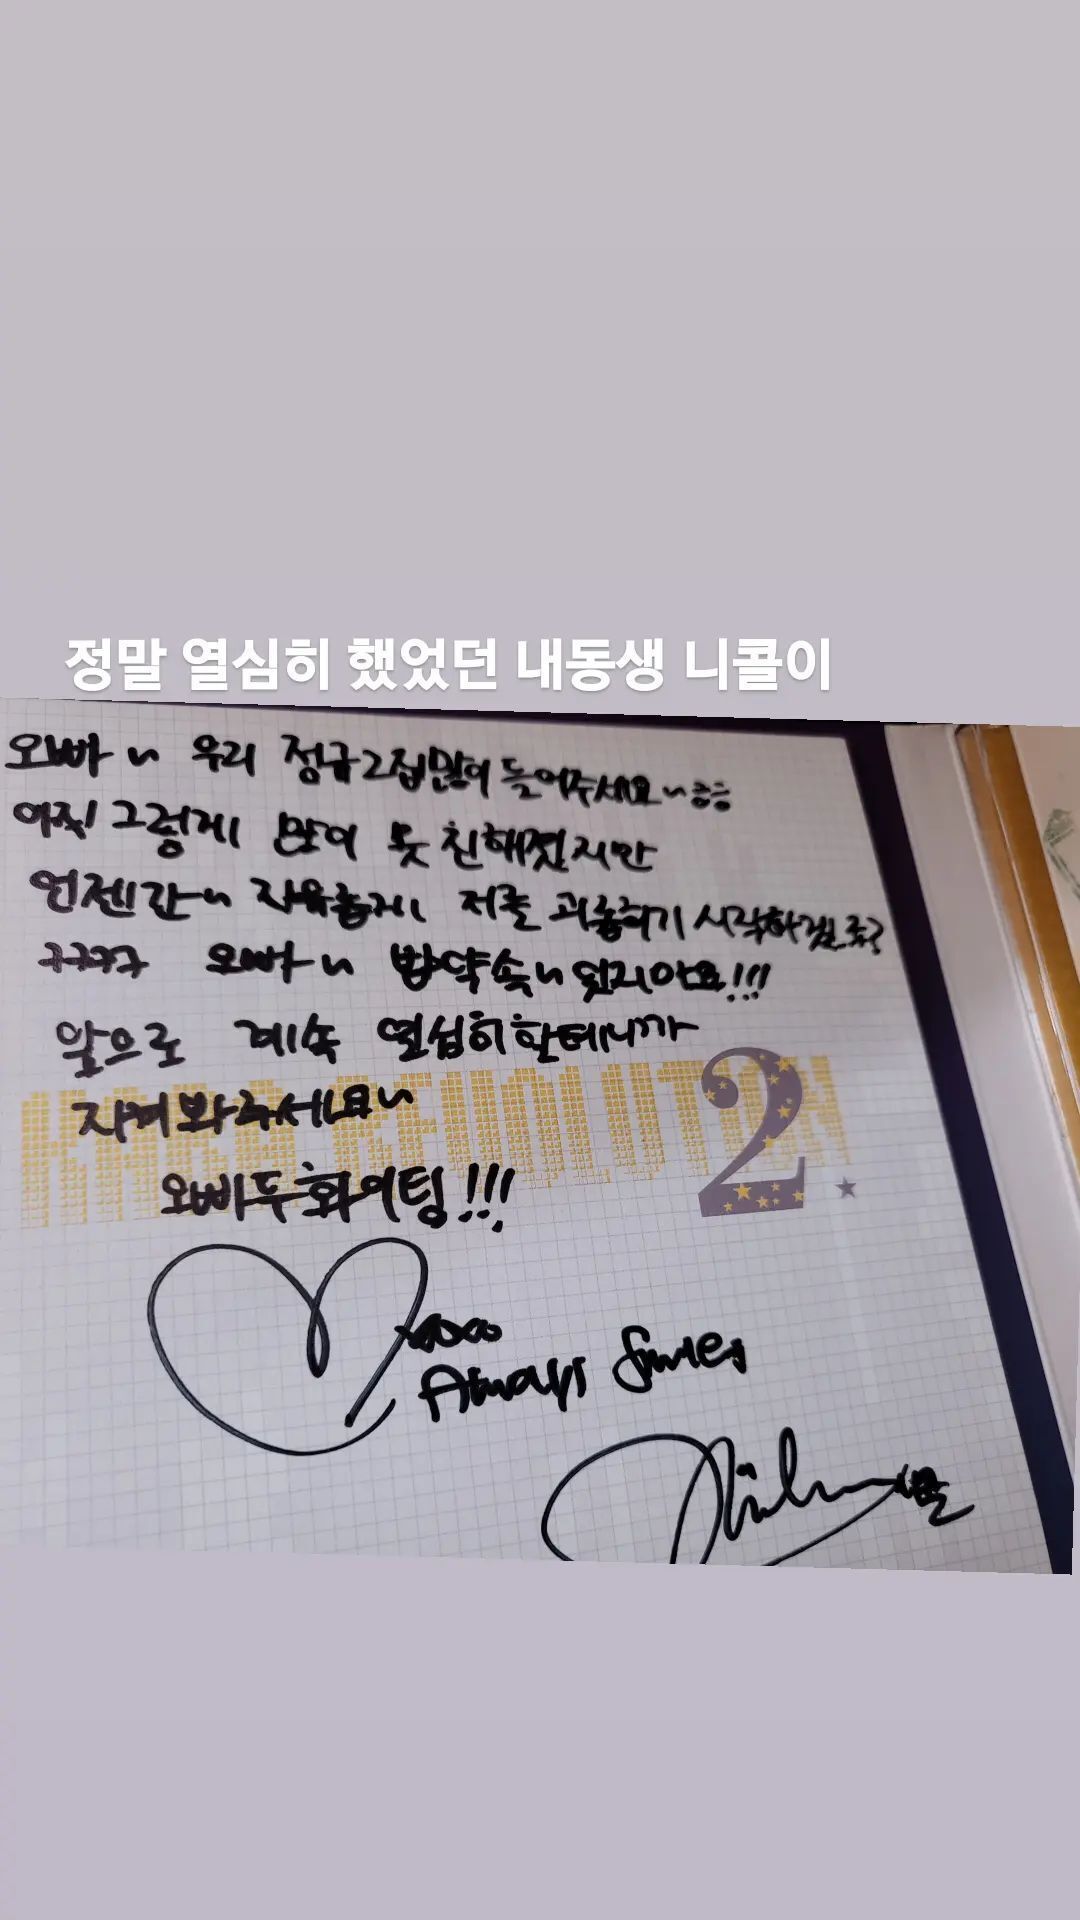 정말 열심히 했었던 내동생 니콜이
오빠~ 우리 정규2집많이 들어주세요~ㅎㅎ
아직 그렇게 많이 못 친해졌지만
언젠간~ 자유롭게 저를 괴롭히기 시작하겠죠?
ㅋㅋㅋㅋ 오빠~ 밥약속~잊지마요!!!
앞으로 계속 열심히할테니까
지켜봐주세요~
KARA REVOLUTION 2
오빠두화이팅!!!
xoxo
Always Smiles
니콜